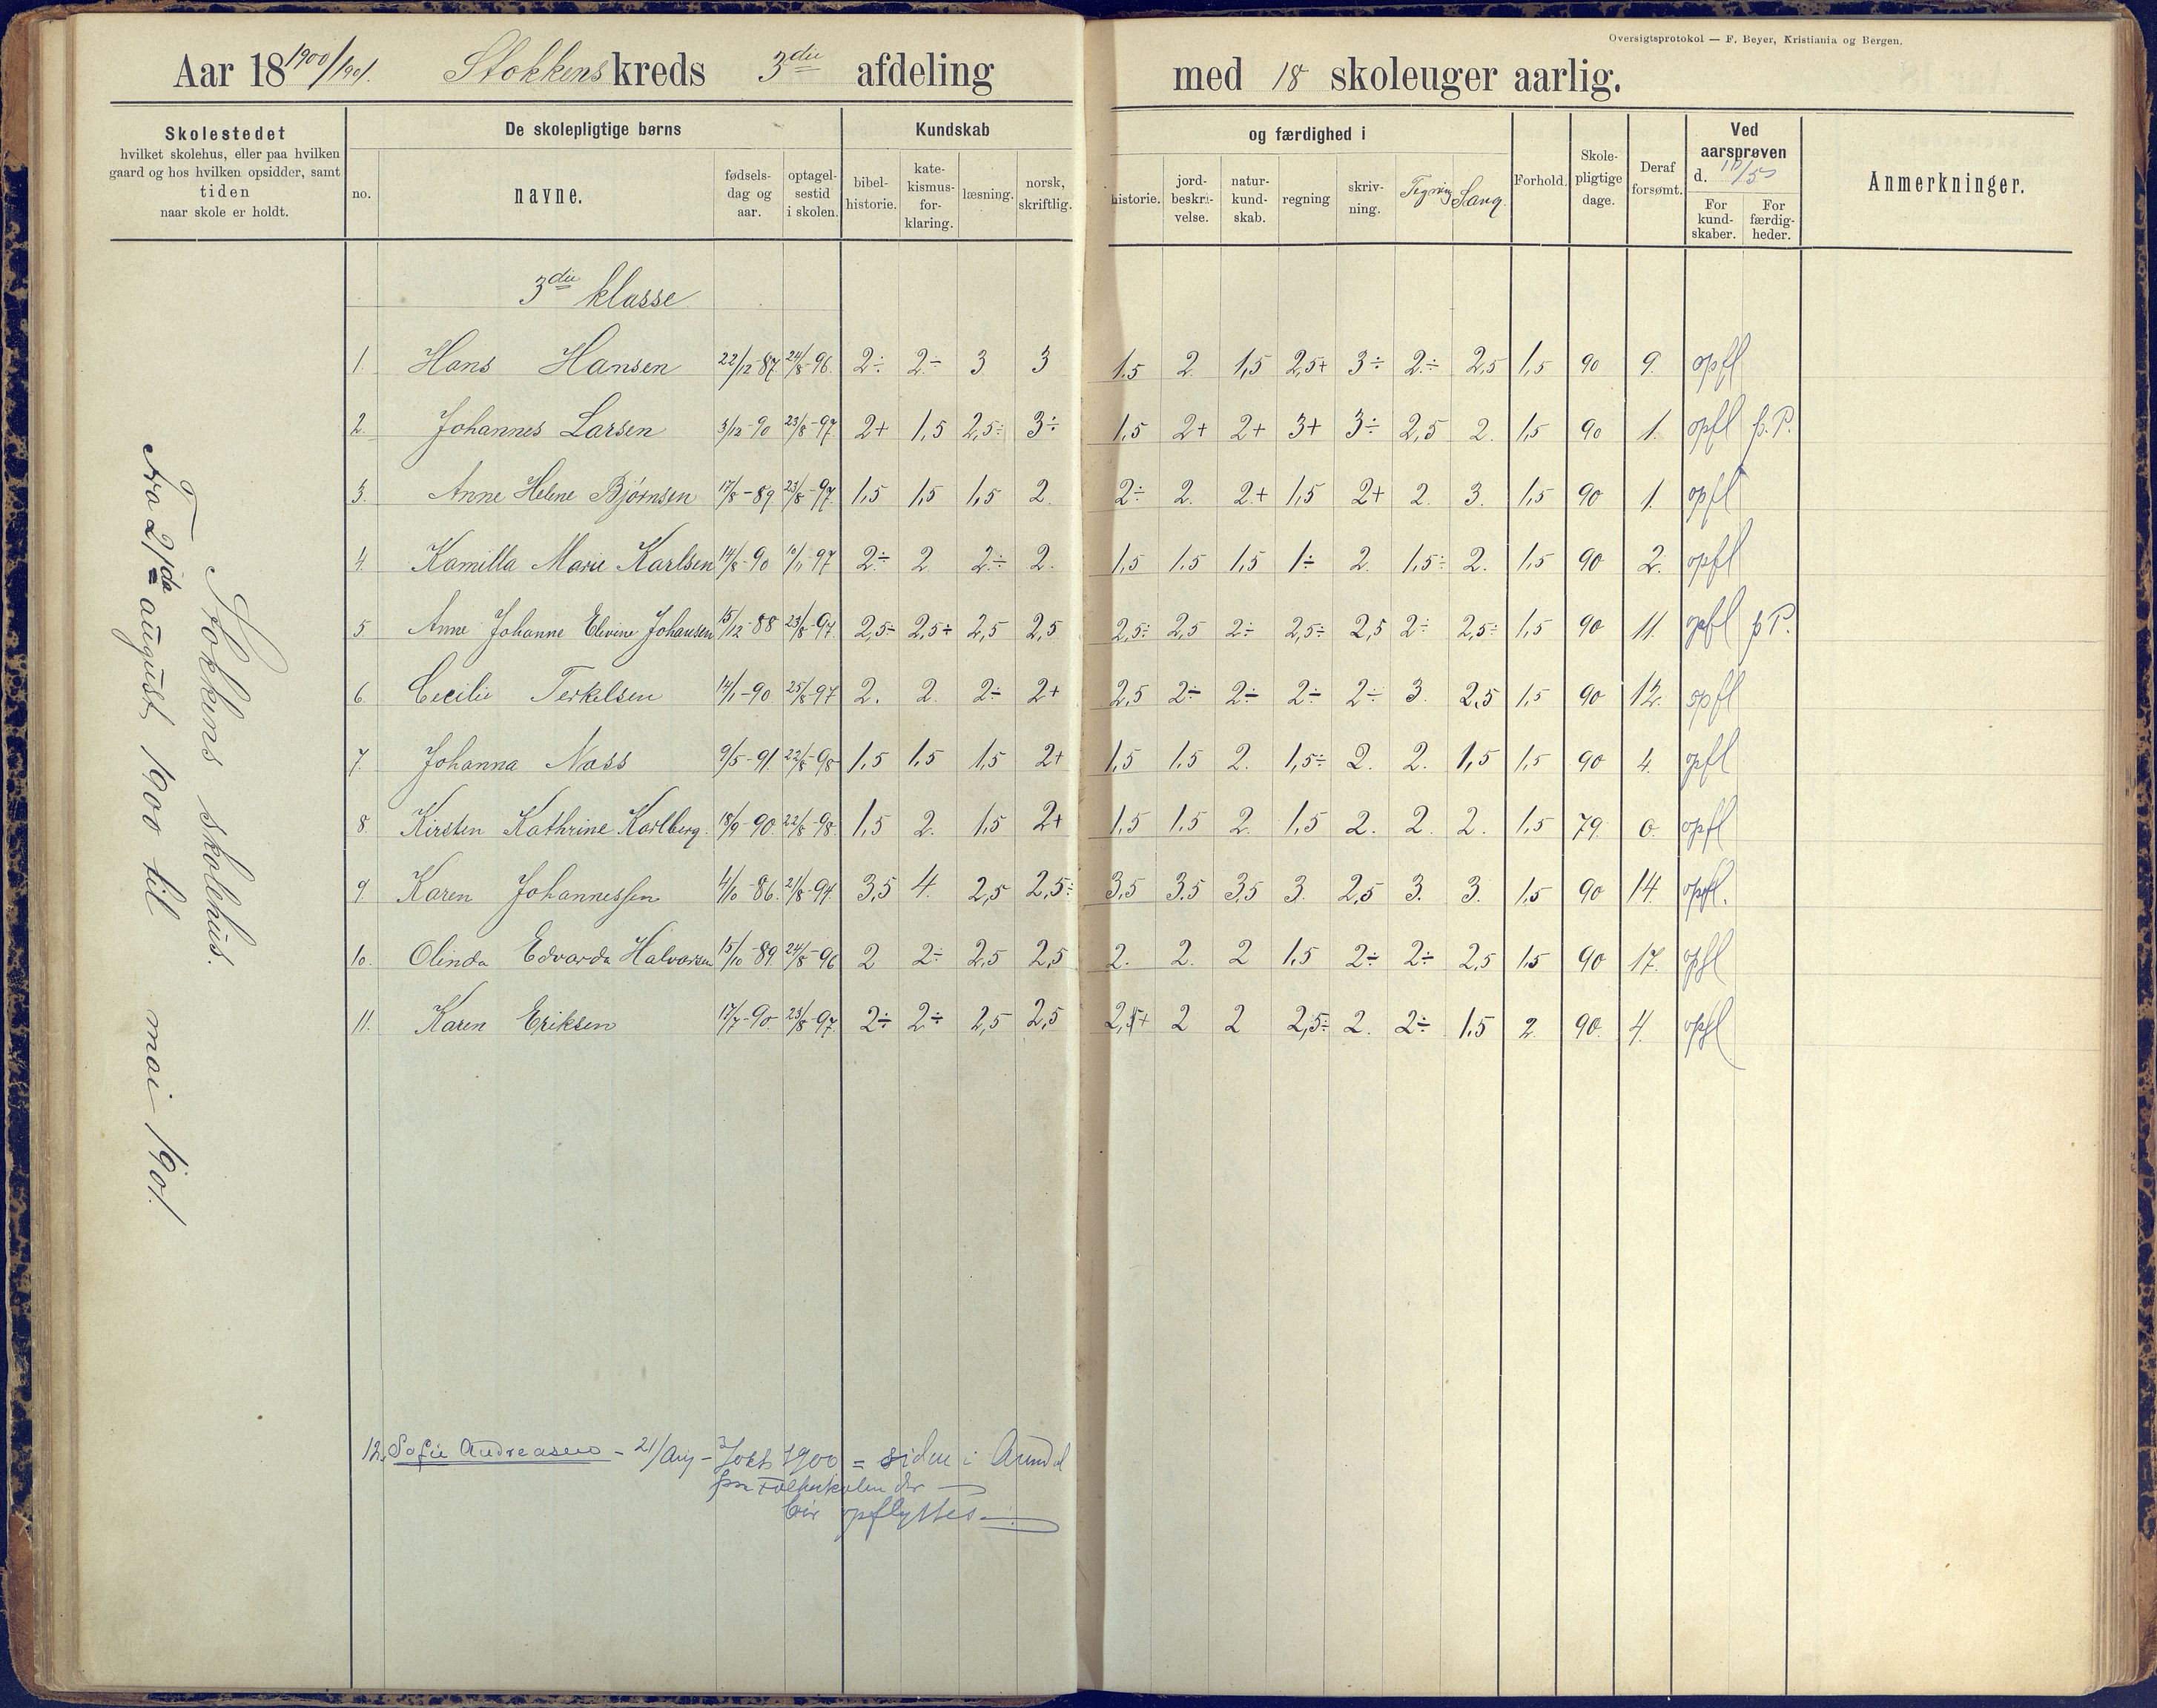 Oversigtsprotokol — F. Beyer, Kristiania og Bergen.
Aar 18 1900/1901. Stokkens kreds 3die afdeling med 18 skoleuger aarlig.
Skolestedet
hvilket skolehus, eller paa hvilken
gaard og hos hvilken opsidder, samt
tiden
naar skole er holdt.
De skolepligtige børns
no.
navne.
fødsels-
dag og
aar.
optagel-
sestid
i skolen.
Kundskab
bibel-
historie.
kate-
kismus-
for-
klaring.
læsning.
norsk,
skriftlig.
og færdighed i
historie.
jord-
beskri-
velse.
natur-
kund-
skab.
regning
skriv-
ning.
Tegning
Sang.
Forhold.
Skole-
pligtige
dage.
Deraf
forsømt.
Ved
aarsprøven
d. 11/5
For
kund-
skaber.
For
færdig-
heder.
Anmerkninger.
Stokkens skolehus.
Fra 21de august 1900 til mai 1901.
3die klasse
1. Hans Hansen 22/12-87. 24/8-96. 2÷ 2÷ 3 3 1,5 2. 1,5 2,5+ 3÷ 2÷ 2,5 1,5 90 9. opfl
2. Johannes Larsen 3/12-90 23/8-97. 2+ 1,5 2,5÷ 3÷ 1,5 2+ 2+ 3+ 3÷ 2,5 2. 1,5 90 1. opfl p.P.
3. Anne Helene Bjørnsen 17/8-89 23/8-97. 1,5 1,5 1,5 2. 2÷ 2. 2+ 1,5 2+ 2. 3. 1,5 90 1. opfl
4. Kamilla Marie Karlsen 14/8-90 10/1-97 2÷ 2 2÷ 2. 1,5 1,5 1,5 1÷ 2. 1,5÷ 2. 1,5 90 2. opfl
5. Anne Johanne Elevine Johansen 15/12-88 23/8-97. 2,5÷ 2,5÷ 2,5 2,5 2,5÷ 2,5 2÷ 2,5÷ 2,5 2÷ 2,5÷ 1,5 90 11. opfl p P.
6. Cecilie Terkelsen 14/1-90. 25/8-97 2. 2. 2÷ 2+ 2,5 2÷ 2÷ 2÷ 2÷ 3. 2,5 1,5 90 12. opfl
7. Johanna Næss 9/5-91. 22/8-98 1,5 1,5 1,5 2+ 1,5 1,5 2. 1,5÷ 2. 2. 1,5 1,5 90 4. opfl
8. Kirsten Kathrine Karlberg. 18/9-90. 22/8-98. 1,5 2. 1,5 2+ 1,5 1,5 2. 1,5 2. 2. 2. 1,5 79. 0. opfl
9. Karen Johannessen 4/10-86. 21/8-94. 3,5 4. 2,5 2,5÷ 3,5 3,5 3,5 3. 2,5 3. 3. 1,5 90 14. opfl.
10. Olinda Edvarda Halvorsen 15/10-89. 24/8-96 2 2÷ 2,5 2,5 2. 2. 2 1,5 2÷ 2÷ 2,5 1,5 90 17. opfl
11. Karen Eriksen 17/7-90. 23/8-97. 2÷ 2÷ 2,5 2,5 2,5+ 2 2 2,5÷ 2. 2÷ 1,5 2 90. 4. opfl
12. Sofie Andreasen - 21/Aug - okt 1900 = siden i Arendal
Folkeskolen der
bør opflyttes